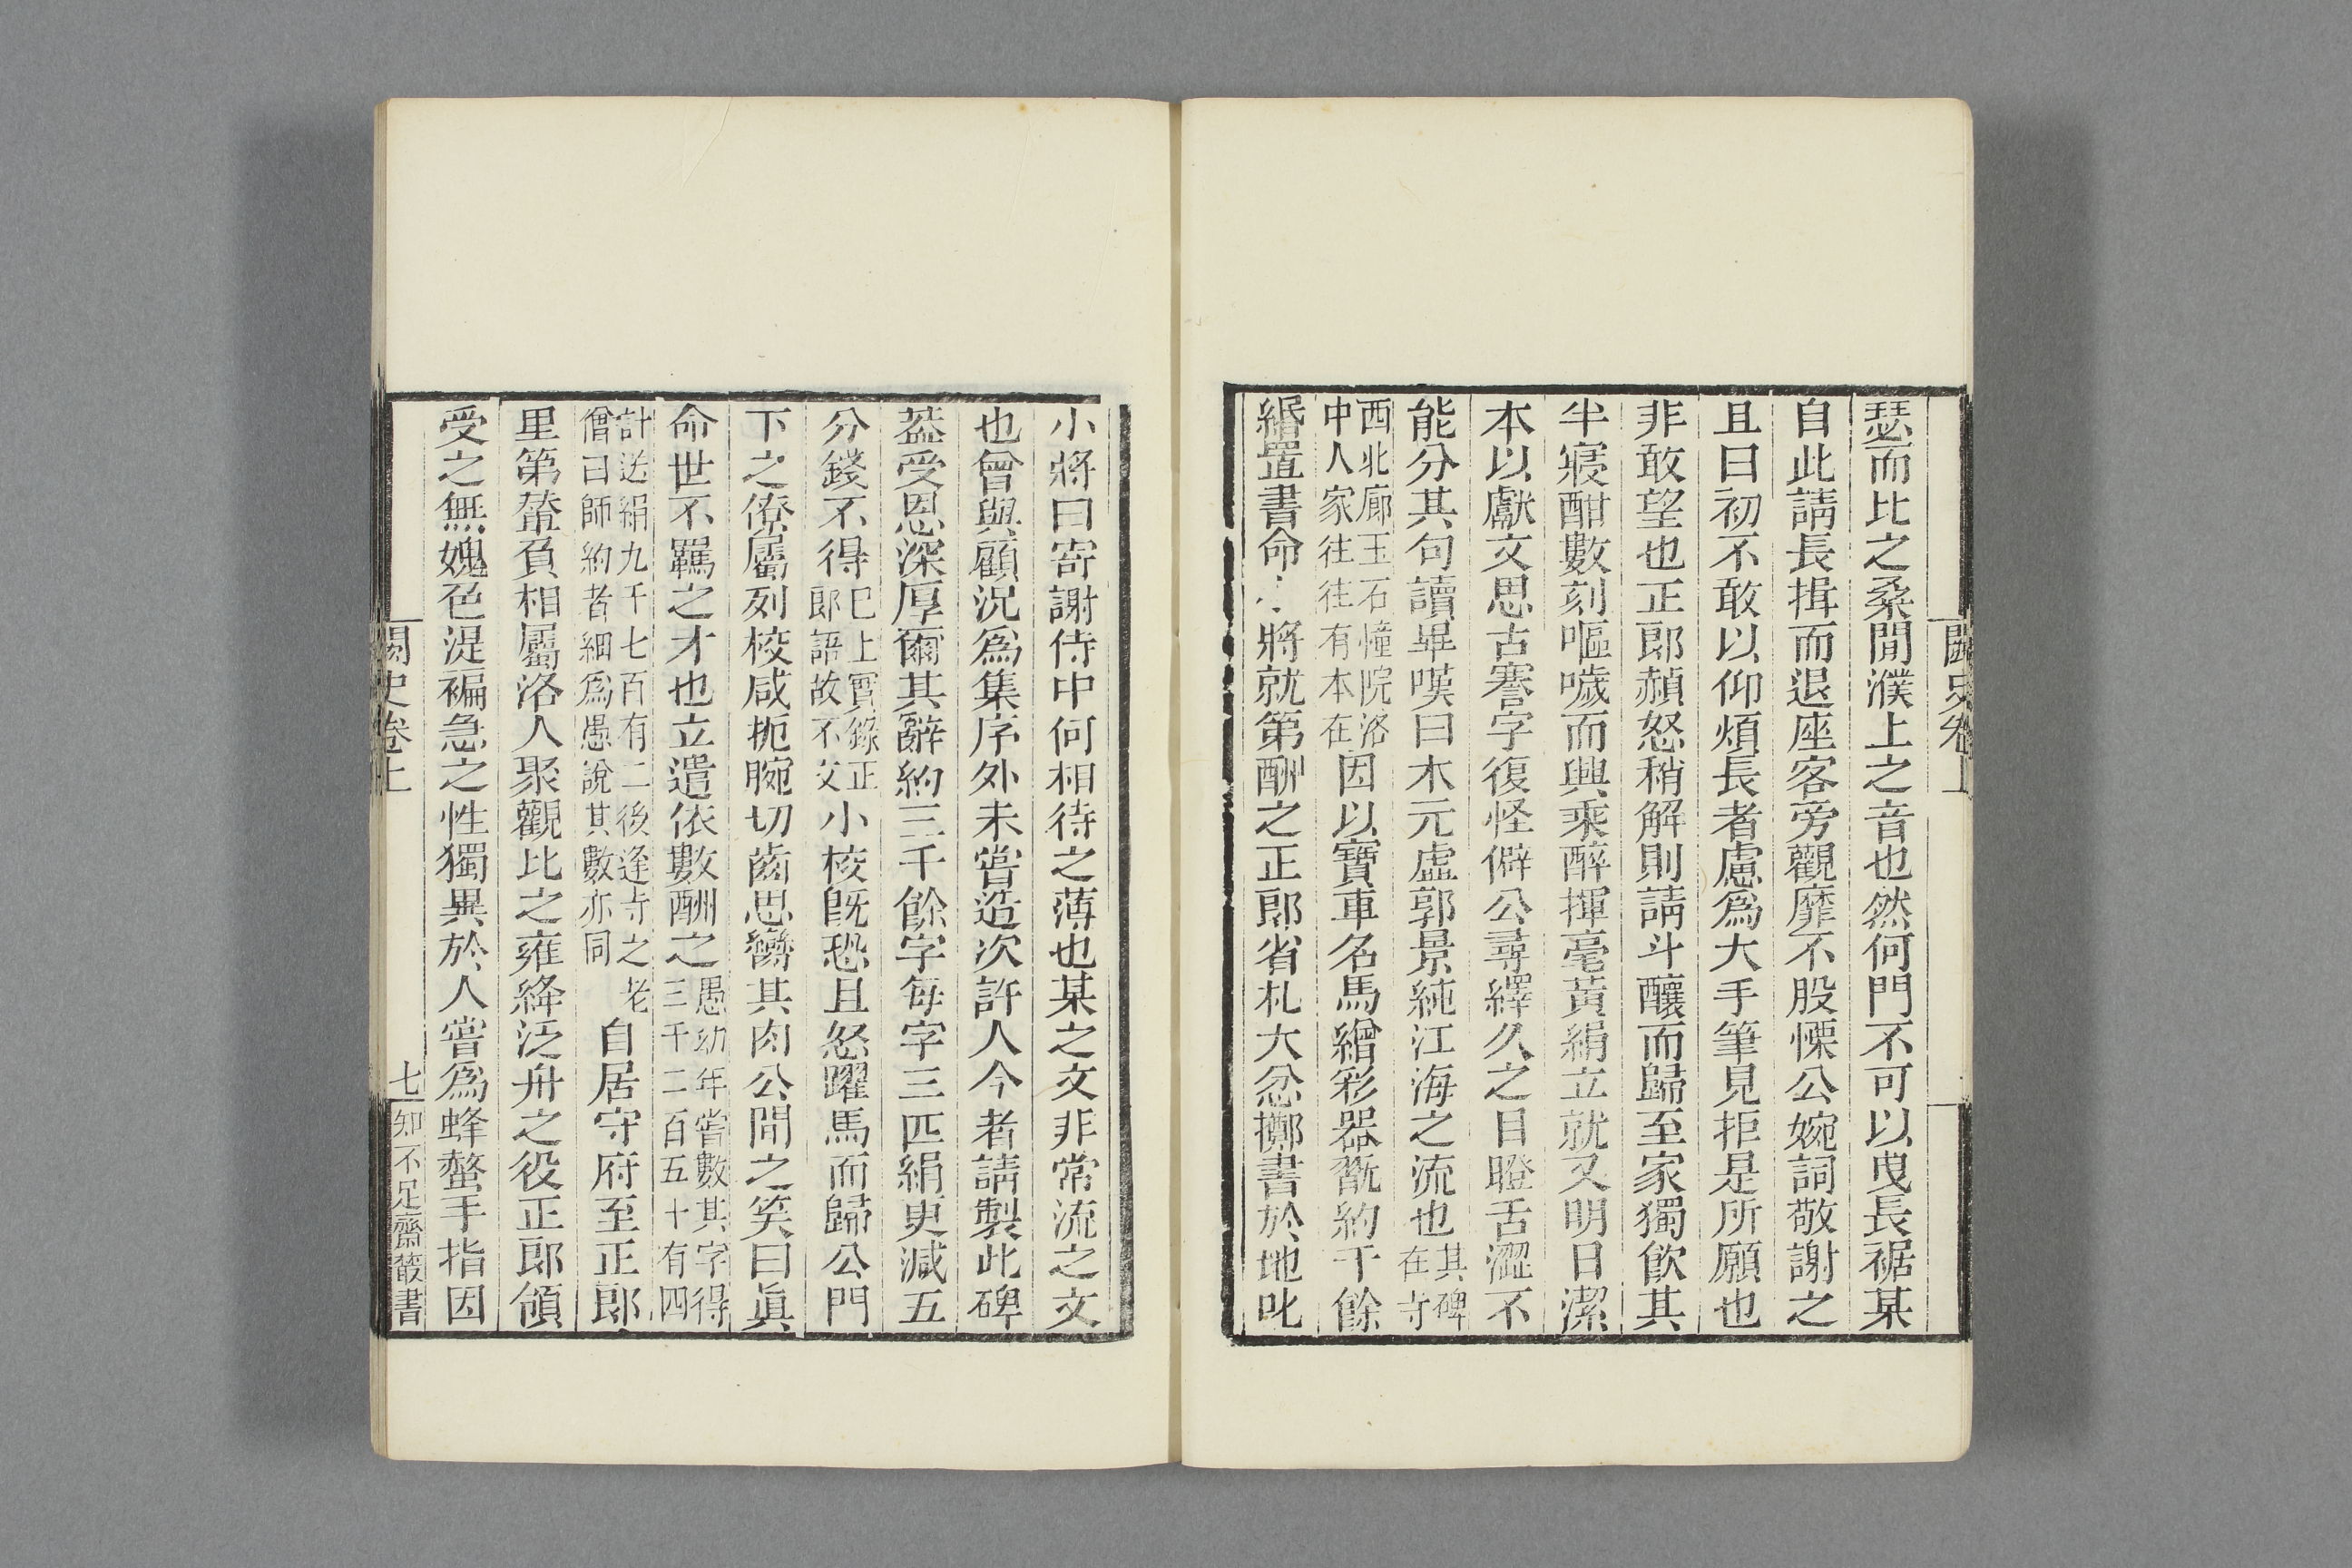 闕史卷上
瑟而比之桑閒濮上之音也然何門不可以曳長裾某
自此請長揖而退座客旁觀靡不股慄公婉詞敬謝之
且曰初不敢以仰煩長者慮爲大手筆見拒是所願也
非敢望也正郎赬怒稍解則請斗釀而歸至家獨飮其
半寢酣數刻嘔噦而興乘醉揮毫黃絹立就又明日潔
本以獻文思古謇字復怪僻公尋繹久之目瞪舌澀不
能分其句讀畢嘆曰木元虛郭景純江海之流也其碑在寺
西北廊玉石幢院洛中人家往往有本在因以寶車名馬繒彩器翫約千餘
緡置書命 將就第酬之正郎省札大忿擲書於地叱
小將曰寄謝侍中何相待之薄也某之文非常流之文
也曾與顧況爲集序外未嘗造次許人今者請製此碑
葢受恩深厚爾其辭約三千餘字每字三匹絹更減五
分錢不得已上實錄正郎語故不文小校旣恐且怒躍馬而歸公門
下之僚屬列校咸扼腕切齒思臠其肉公聞之笑曰眞
命世不羈之才也立遣依數酬之愚幼年嘗數其字得三千二百五十有四
計送絹九千七百有二後逢寺之老僧曰師約者細爲愚說其數亦同自居守府至正郎
里第輦負相屬洛人聚觀比之雍絳泛舟之役正郎領
受之無媿色湜褊急之性獨異於人嘗爲蜂螫手指因
闕史卷上
七
知不足齋叢書